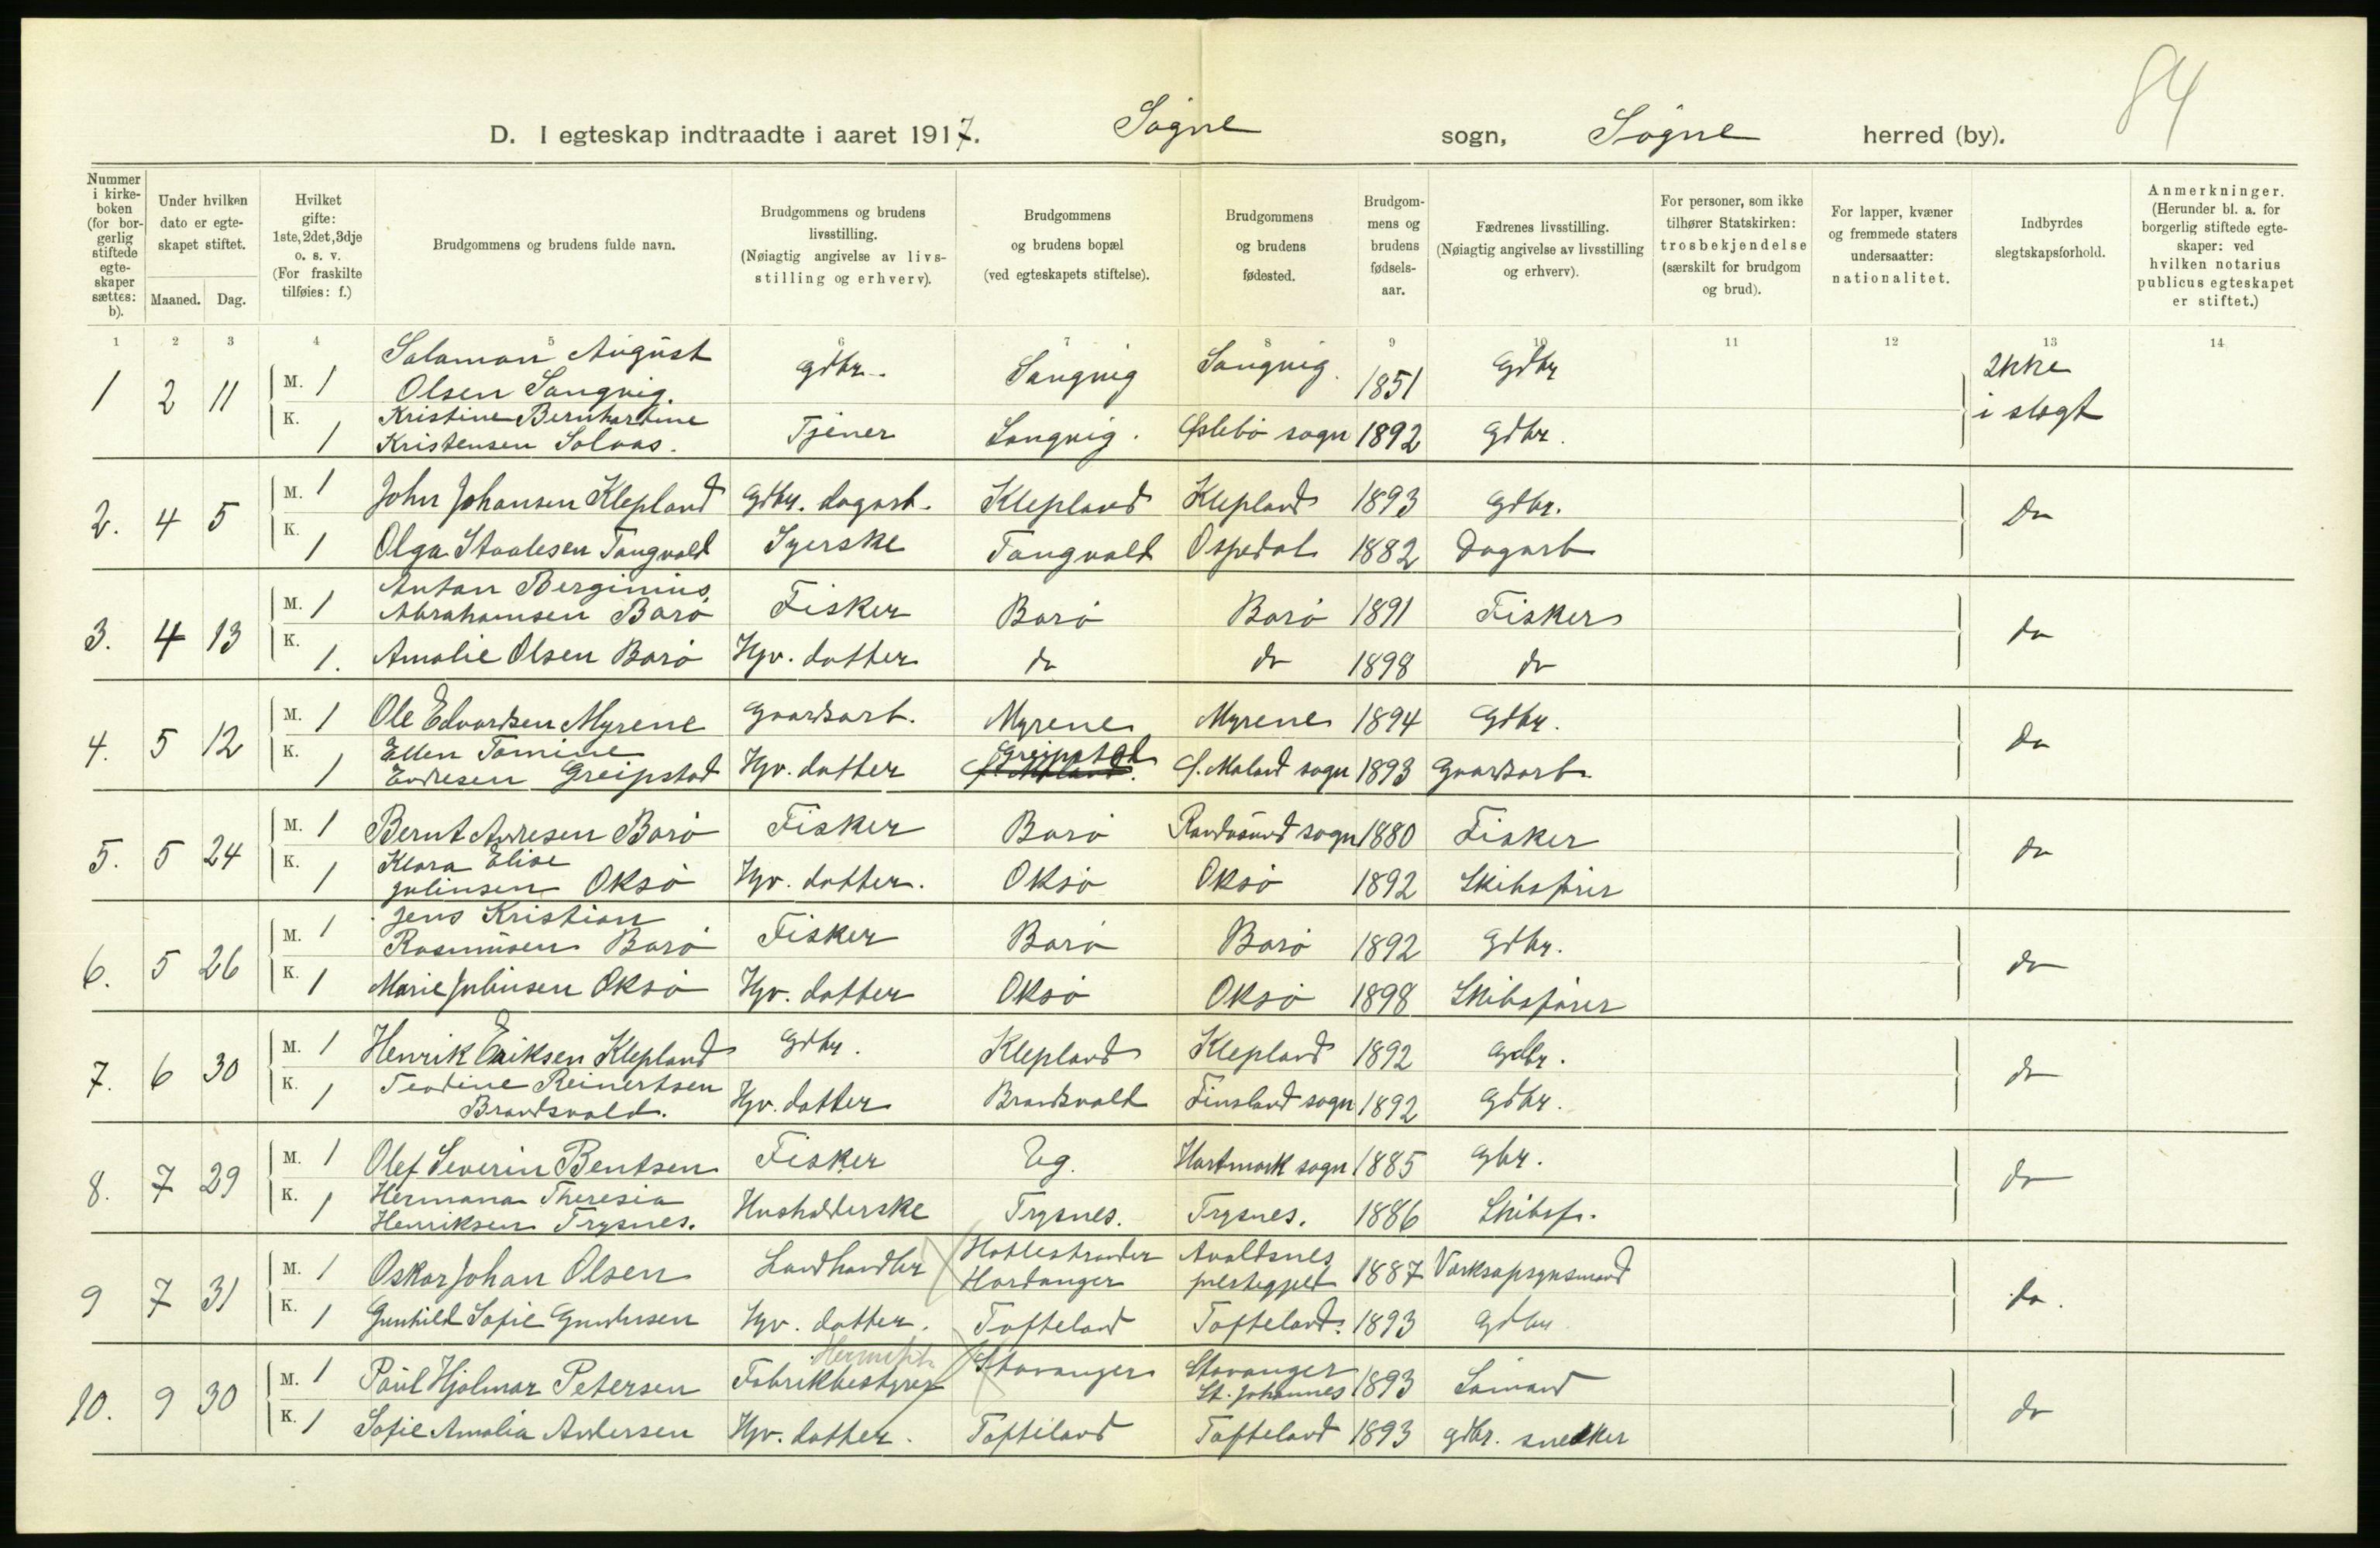 84
D. I egteskap indtraadte i aaret 1917. Søgne sogn, Søgne herred (by).
Nummer i kirkeboken (for borgerlig stiftede egteskaper sættes: b).
Under hvilken dato er egteskapet stiftet.
Maaned. Dag.
Hvilket gifte: 1ste, 2det, 3dje o. s. v. (For fraskilte tilføies: f.)
Brudgommens og brudens fulde navn.
Brudgommens og brudens livsstilling. (Nøiagtig angivelse av livsstilling og erhverv).
Brudgommens og brudens bopæl (ved egteskapets stiftelse).
Brudgommens og brudens fødested.
Brudgommens og brudens fødselsaar.
Fædrenes livsstilling. (Nøiagtig angivelse av livsstilling og erhverv).
For personer, som ikke tilhører Statskirken: trosbekjendelse (særskilt for brudgom og brud).
For lapper, kvæner og fremmede staters undersaatter: nationalitet.
Indbyrdes slegtskapsforhold.
Anmerkninger. (Herunder bl. a. for borgerlig stiftede egteskaper: ved hvilken notarius publicus egteskapet er stiftet.)
1 2 3 4 5 6 7 8 9 10 11 12 13 14
1 2 11 M. 1 Salamon August Olsen Sangvig. Gdbr. Sangvig Sangvig. 1851 Gdbr Ikke i slegt
K. 1 Kristine Bernhardine Kristensen Solaas. Tjener Sangvig. Øslebø sogn 1892 Gdbr.
2. 4 5 M. 1 John Johansen Klepland Gdbr. dagarb. Klepland Klepland 1893 Gdbr. Do
K. 1 Olga Staalesen Tangvald Syerske Tangvald Ospedal 1882 Dagarb
3. 4 13 M. 1 Anton Berginius Abrahamsen Borø Fisker Borø Borø 1891 Fisker do
K. 1. Amalie Olsen Borø Hjv. datter do do 1898 do
4. 5 12 M. 1 Ole Edvardsen Myrene Gaardsarb. Myrene Myrene 1894 Gdbr. do
K. 1 Ellen Tomine Endresen Greipstad Hjv. datter Greipstad Ø. Maland sogn 1893 Gaardsarb.
5. 5 24 M. 1 Bernt Andresen Borø Fisker Borø Randøsund sogn 1880 Fisker do
K. 1 Klara Elise Juliusen Oksø Hjv. datter. Oksø Oksø 1892 Skibsfører
6. 5 26 M. 1 Jens Kristian Rasmusen Borø Fisker Borø Borø 1892 Gdbr. do
K. 1 Marie Juliusen Oksø Hjv. datter Oksø Oksø 1898 Skibsfører
7. 6 30 M. 1 Henrik Eriksen Klepland Gdbr. Klepland Klepland 1892 Gdbr. do
K. 1 Teodine Reinertsen Brandsvold. Hjv. datter Brandsvold Finsland sogn 1892 Gdbr.
8. 7 29 M. 1 Olef Severin Bentsen Fisker Eg. Hartmark sogn 1885 Gbr. do
K. 1 Hermana Theresia Henriksen Trysnes. Husholderske Trysnes. Trysnes. 1886 Skibsf.
9 7 31 M. 1 Oskar Johan Olsen Landhandler Hardanger Avaldsnes prestegjeld 1887 do.
K. 1 Gunhild Sofie Gundersen Hjv. datter. Tofteland Tofteland. 1893 Gdbr
10. 9 30 M. 1 Paul Hjalmar Petersen Fabrikbestyrer Hermetik Stavanger Stavanger St. Johannes 1893 Sømand do
K. 1 Sofie Amalia Andersen Hjv. datter. Tofteland Tofteland 1893 gdbr. snedker